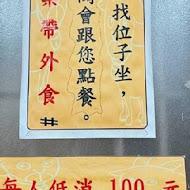 找位子坐，
會跟您點餐。
帶外食#
每人低消 100 元